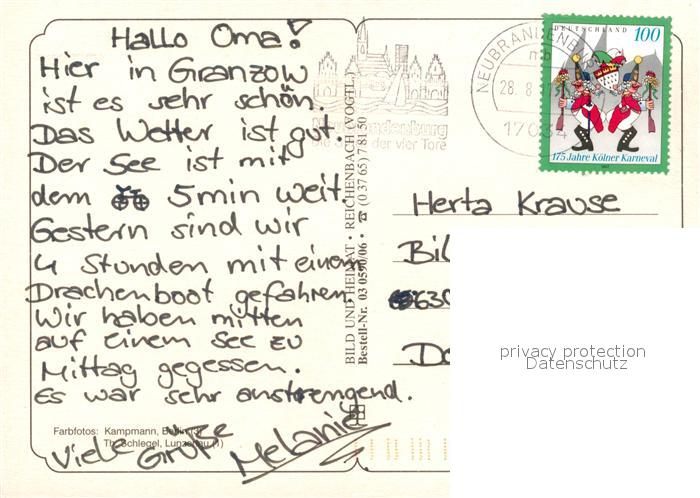 Hallo Oma!
Hier in Granzow
ist es sehr schön.
Das Wetter ist gut.
Der See ist mit
dem 5min weit.
Gestern sind wir
4 Stunden mit einem
Drachenboot gefahren.
Wir haben mitten
auf einem See zu
Mittag gegessen.
Es war sehr anstrengend.
Viele Grüße Melanie
Farbfotos: Kampmann, Berlin
Th. Schlegel, Lunzenau (1)
BILD UND HEIMAT • REICHENBACH (VOGTL.)
Bestell-Nr. 03 0590/06 • ☎ (0 37 65) 7 81 50
Neubrandenburg
Die Stadt der vier Tore
NEUBRANDENBURG
mb
28. 8.
17034
DEUTSCHLAND 100
175 Jahre Kölner Karneval
Herta Krause
Bil
630
Do
privacy protection
Datenschutz